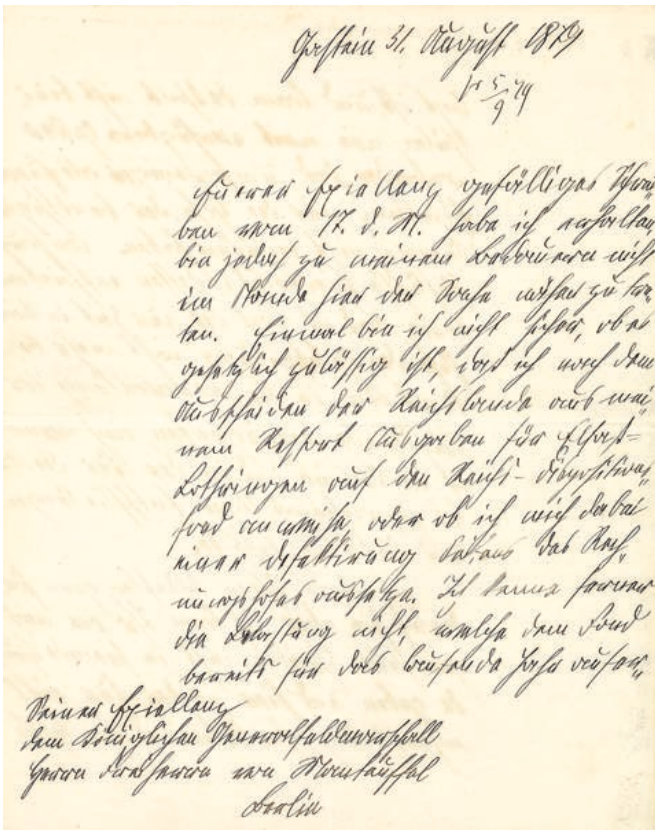 Gastein 31. August 1879
pr 5/9 79
Euerer Excellenz gefälliges Schrei-
ben vom 17. d. M. habe ich erhalten,
bin jedoch zu meinem Bedauern nicht
im Stande hier der Sache näher zu tre-
ten. Einmal bin ich nicht sicher, ob es
gesetzlich zulässig ist, daß ich nach dem
Ausscheiden der Reichslande aus mei-
nem Ressort Ausgaben für Elsaß-
Lothringen auf den Reichs-Dispositions-
fond anweise, oder ob ich mich dabei
einer Defektirung Seitens des Rech-
nungshofes aussetze. Ich kenne ferner
die Belastung nicht, welche dem Fond
bereits für das laufende Jahr aufer-
Seiner Excellenz
dem Königlichen Generalfeldmarschall
Herrn Freiherrn von Manteuffel
Berlin